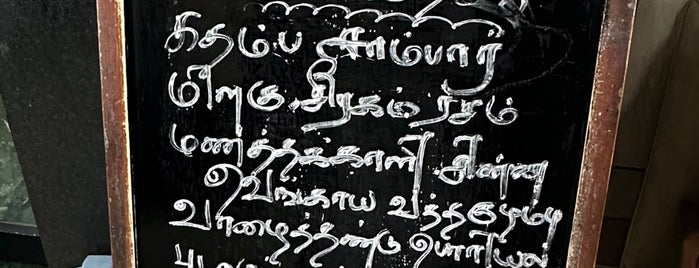 கதம்ப சாம்பார்
மிளகு சீரகம் ரசம்
மணத்தக்காளி சின்ன
வெங்காய வத்தகுழம்பு
வாழைத்தண்டு பொரியல்